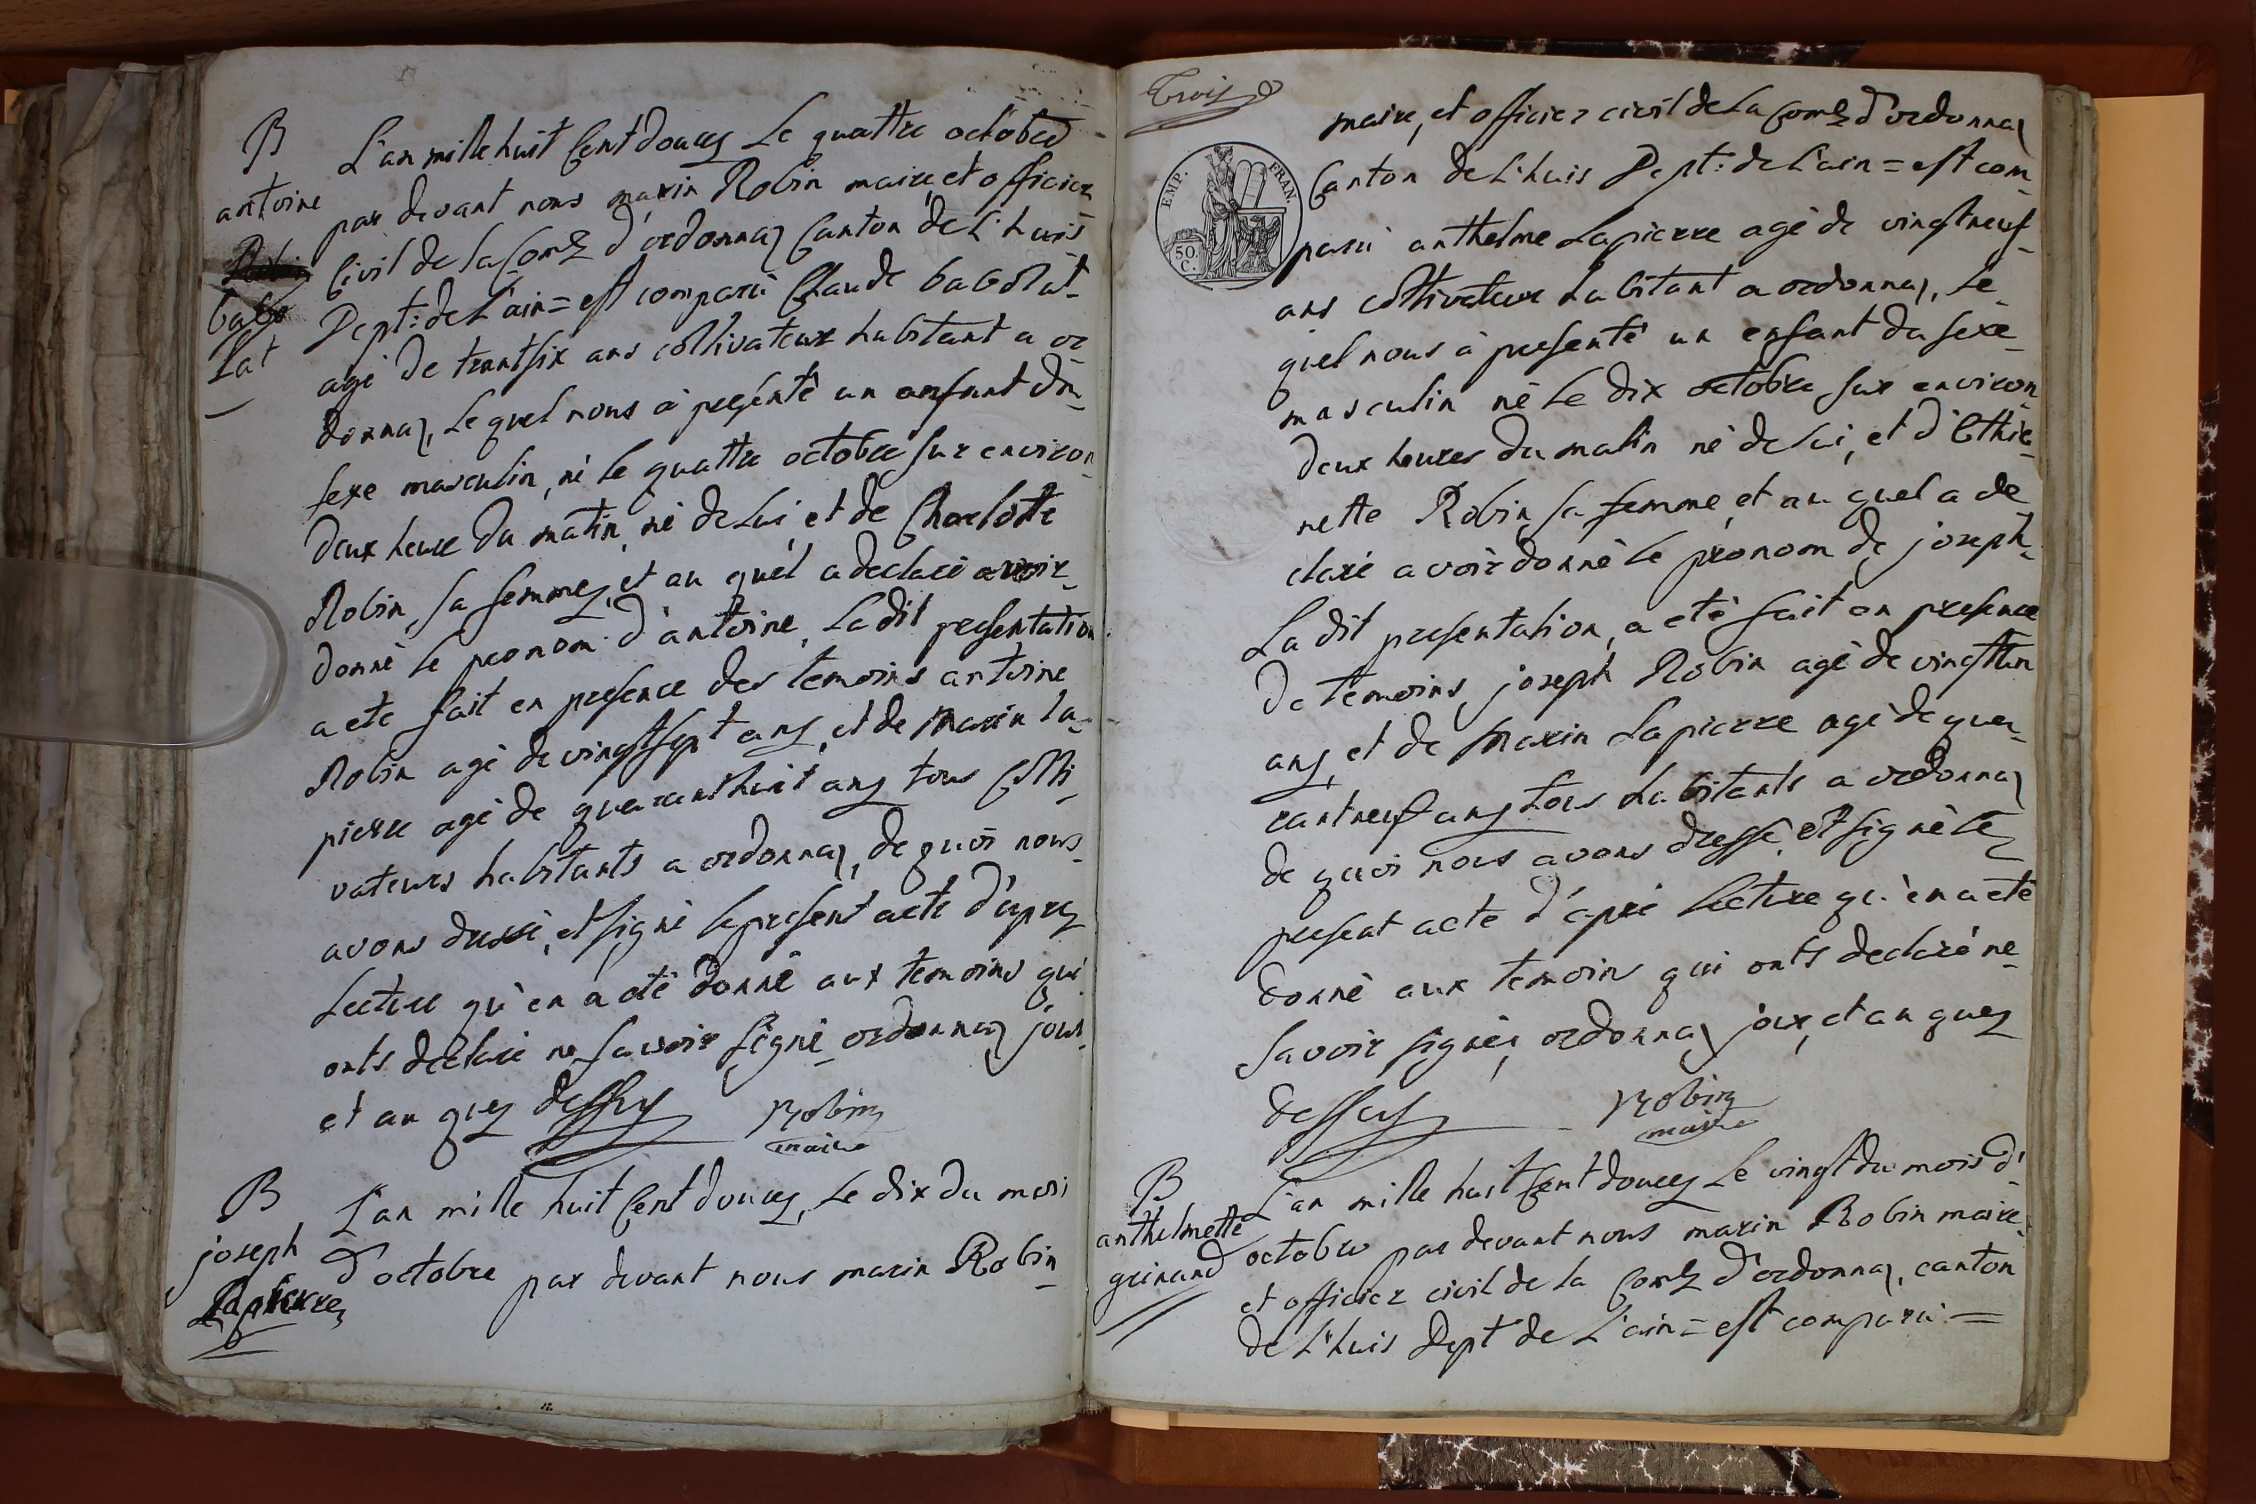 B
antoine
babo
lat
L'an mille huit Cent douces Le quattre octobre
par devant nous marin Robin maire, et officier
Civil de la Com.e d'ordonnaz Canton de L'huis
Dept: de L'ain = est comparu Claude babolat
agé de trantsix ans coltivateur habitant a or
donnaz, Le quel nous à presenté un anfant du
sexe masculin, né le quattre octobre sur environ
deux heure du matin, né de Lui, et de Charlotte
Robin, sa femme, et au quél a declaré avoir
donné le pronom d'antoine, Ladit presentation
a eté fait en presence des temoins antoine
Robin agé de vingtsept ans, et de Marin la-
pierre agé de quaranthuit ans tous Colti-
vateurs habitants a ordonnaz, de quoi nous
avons dressé, et signé le present acte d'aprez
Lecture qu'en a eté donné aux temoins qui
onts declaré ne savoir signé ordonnaz jour
et an quez dessus Robin
maire
B
joseph
Lapierre
L'an mille huit Cent douces, Le dix du mois
d'octobre par devant nous marin Robin
Trois
EMP. FRAN.
50 C.
maire, et officier civil de La Com.e d'ordonnaz
Canton de L'huis Dept: de L'ain = est com-
paru anthelme Lapierre agé de vingtneuf
ans coltivateur habitant a ordonnaz, Le-
quel nous à presenté un enfant du sexe
masculin né Le dix octobre sur environ
deux heures du matin né de Lui, et d'Ethie-
nette Robin, sa femme, et au quel a de
claré avoir donné le pronom de joseph
La dit presentation, a eté fait en presence
de temoins, joseph Robin agé de vingttun
ans, et de Marin Lapierre agé de qua-
rantneuf ans tous habitants a ordonnaz
de quoi nous avons dressé, et signé le
present acte d'apré Lecture qu'en a eté
donné aux temoins qui onts declaré ne
savoir signér, ordonnaz jour, et an quez
dessus Robin
maire
B
anthelmette
guinand
L'an mille huit Cent douces Le vingt du mois d'
octobre par devant nous marin Robin maire
et officier civil de la Com.e d'ordonnaz, canton
de L'huis Dept de L'ain = est comparu =